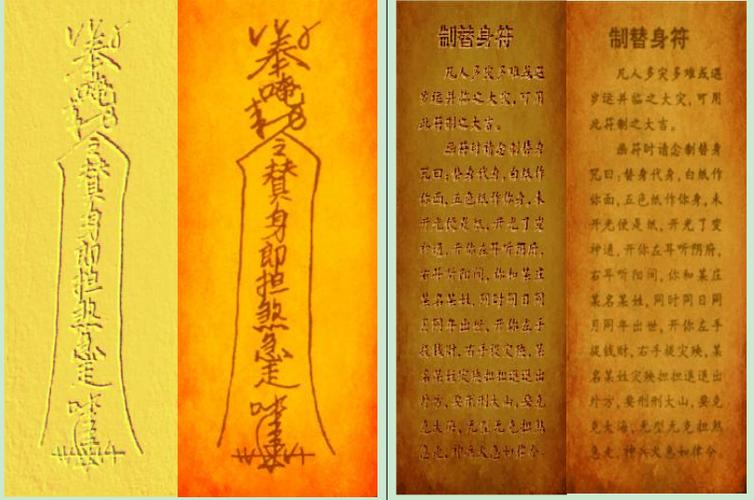 奉
唵
賛身即担煞急走
奉
唵
賛身即担煞急走
制替身符
凡人多灾多难或遇
岁运并临之大灾,可用
此符制之大吉。
画符时请念制替身
咒曰:替身代身,白纸作
你面,五色纸作你身,未
开光便是纸,开光了变
神通,开你左耳听阴府,
右耳听阳间,你和某庄
某名某姓,同时同日同
月同年出世,开你左手
提钱财,右手提灾殃,某
名某姓灾殃担担退退出
外方,要刑刑大山,要克
克大海,无型无克担煞
急走,神兵火急如律令。
制替身符
凡人多灾多难或遇
岁运并临之大灾,可用
此符制之大吉。
画符时请念制替身
咒曰:替身代身,白纸作
你面,五色纸作你身,未
开光便是纸,开光了变
神通,开你左耳听阴府,
右耳听阳间,你和某庄
某名某姓,同时同日同
月同年出世,开你左手
提钱财,右手提灾殃,某
名某姓灾殃担担退退出
外方,要刑刑大山,要克
克大海,无型无克担煞
急走,神兵火急如律令。